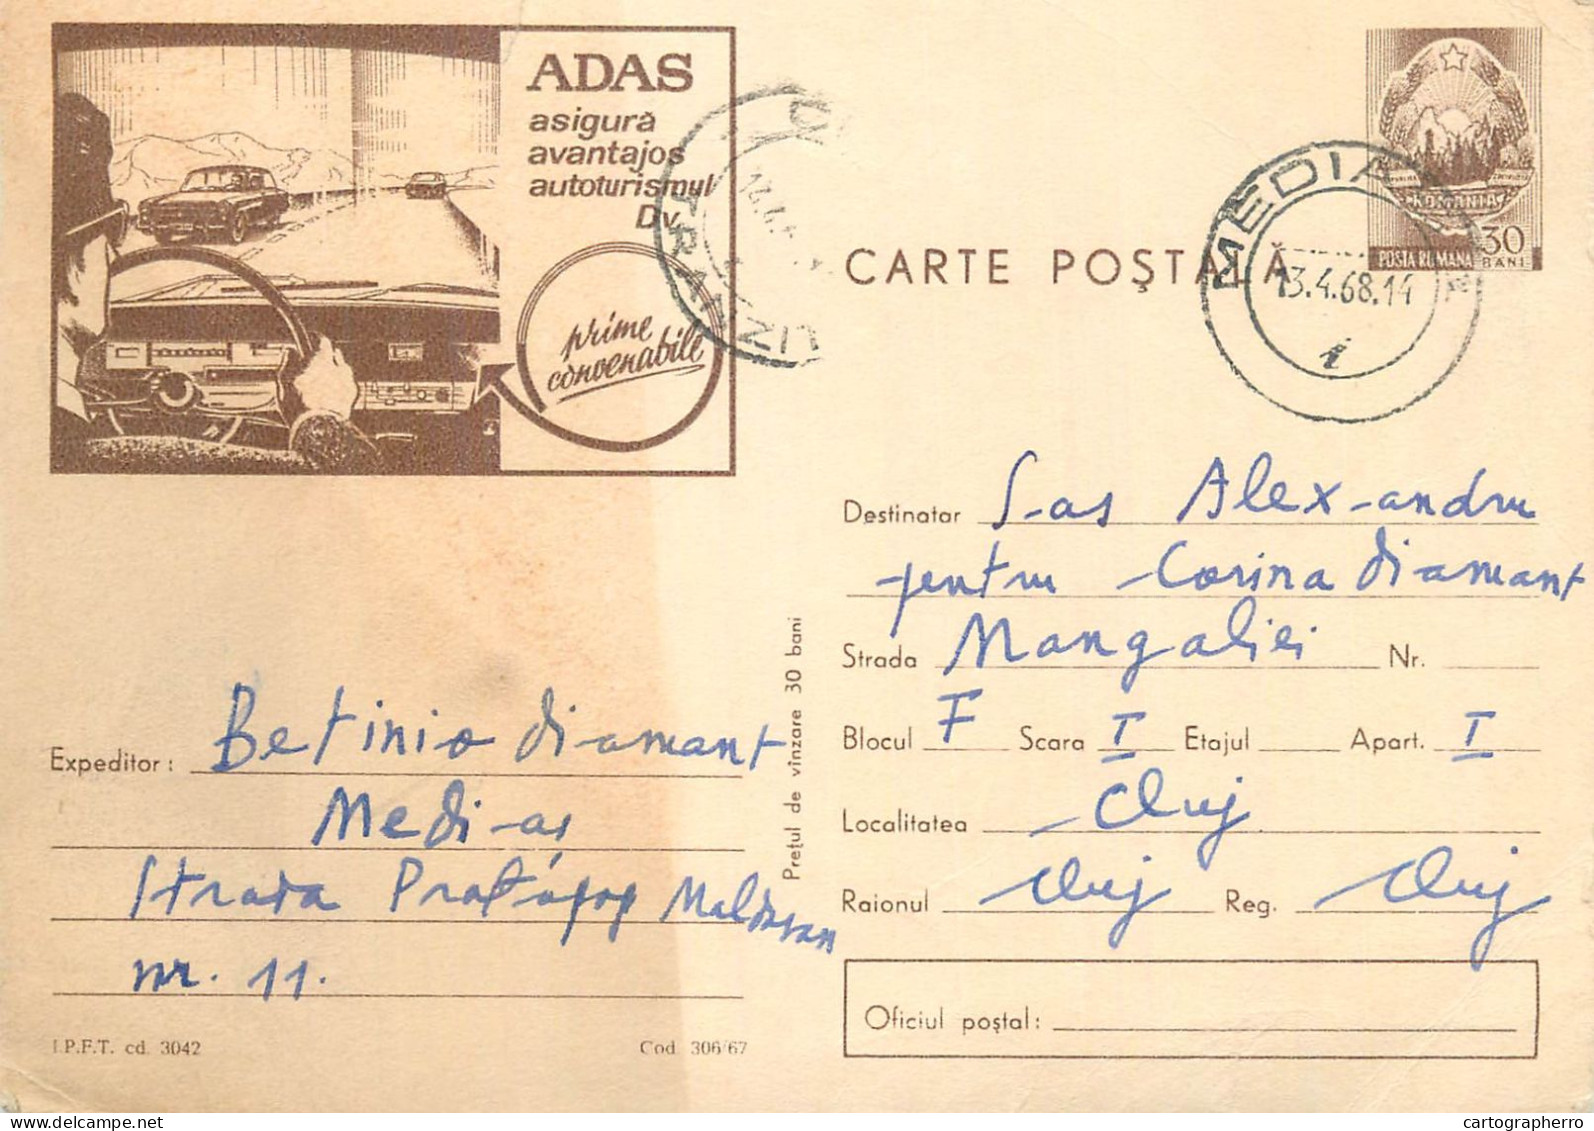 ADAS
asigură
avantajos
autoturismul
Dv.
prime
convenabile
CARTE POŞTALĂ
ROMANIA
POSTA ROMANA
30
BANI
MEDIAŞ
13.4.68.14
TRANZIT
Destinatar Sas Alexandru
pentru Corina Diamant
Strada Mangaliei Nr.
Blocul F Scara I Etajul Apart. I
Localitatea Cluj
Raionul Cluj Reg. Cluj
Oficiul poştal:
Preţul de vînzare 30 bani
Expeditor: Diamant
Mediaş
Strada Protopop Moldovan
nr. 11.
I.P.F.T. cd. 3042
Cod 306/67
delcampe.net
cartographerro